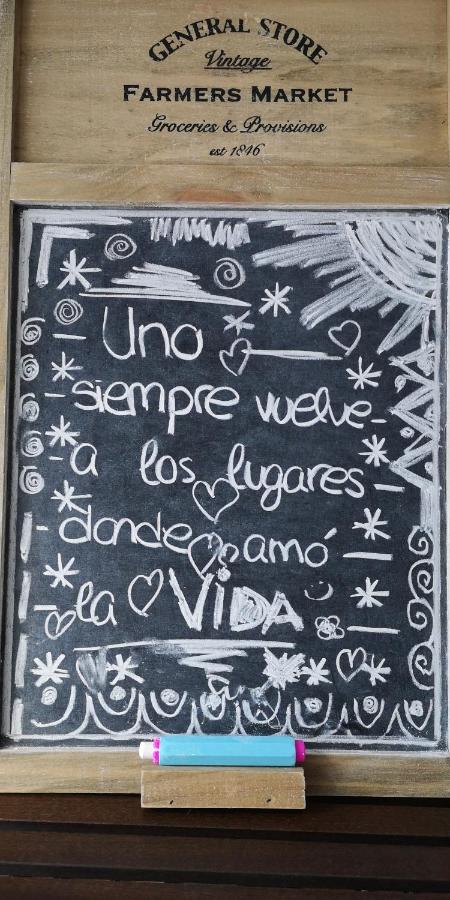 GENERAL STORE
Vintage
FARMERS MARKET
Groceries & Provisions
est 1846
Uno
siempre vuelve
a los lugares
donde amó
la ViDA